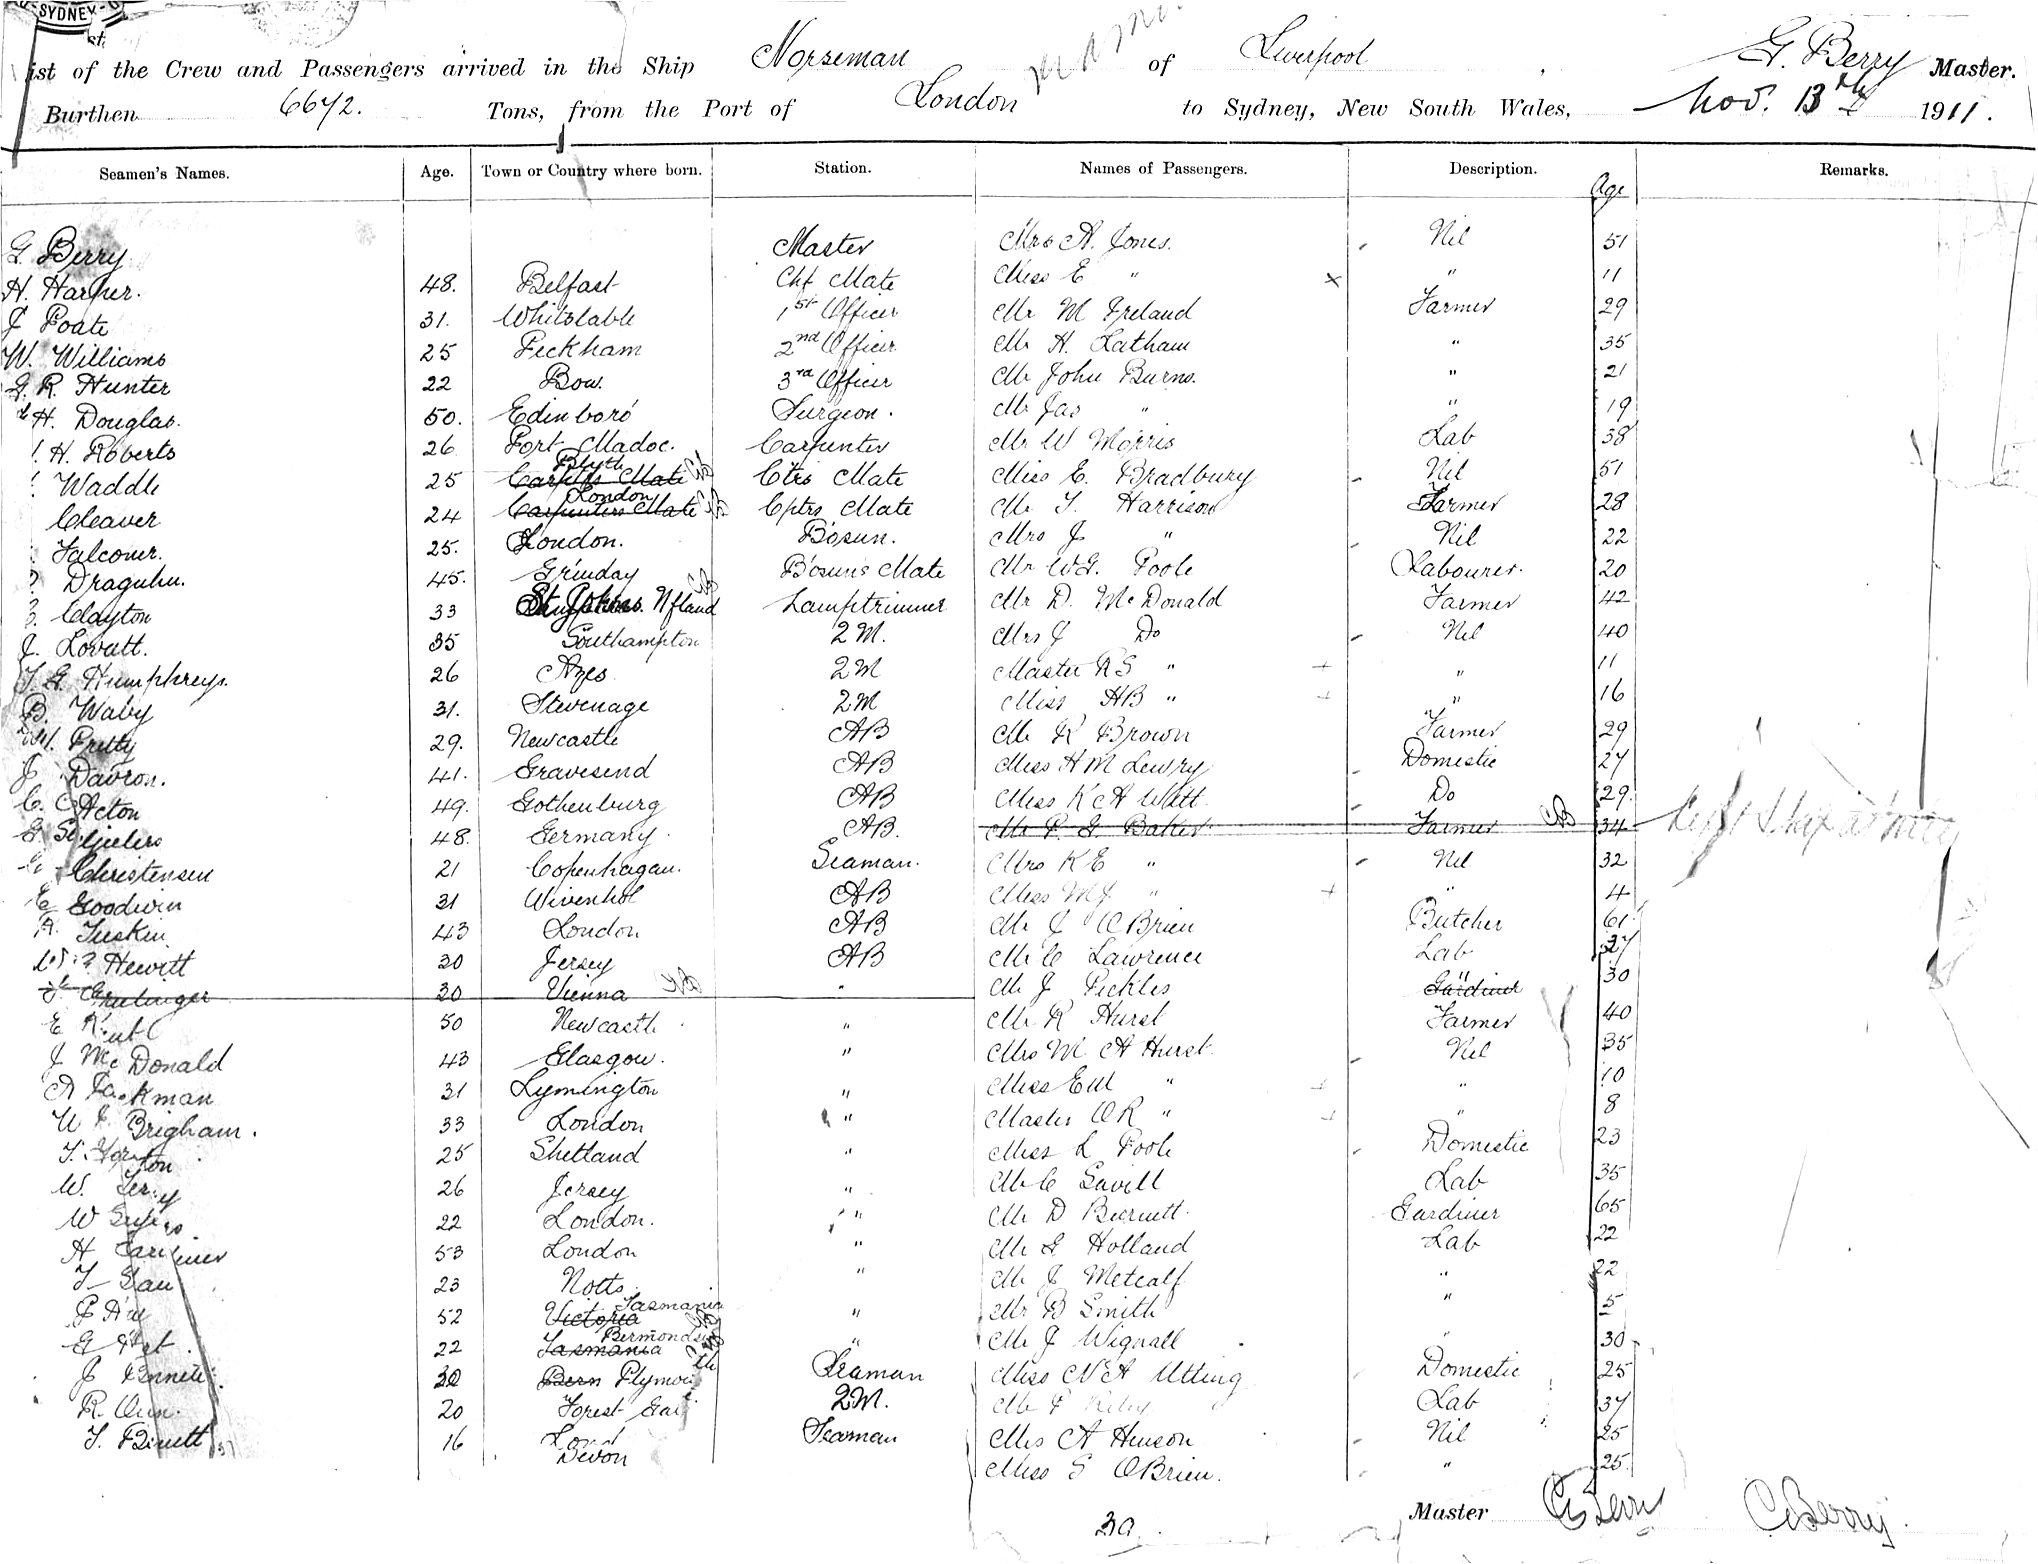 SYDNEY
ist of the Crew and Passengers arrived in the Ship Norseman of Liverpool G. Berry Master.
Burthen 6672. Tons, from the Port of London to Sydney, New South Wales, Nov. 13th 1911.
Seamen's Names. Age. Town or Country where born. Station. Names of Passengers. Description. Age Remarks.
G Berry Master Mrs A. Jones. Nil 51
H. Harper. 48. Belfast Chf Mate Miss E " x " 11
J Poate 31. Whitstable 1st Officer Mr M Ireland Farmer 29
W. Williams 25 Peckham 2nd Officer Mr H. Latham " 35
G R Hunter 22 Bow. 3rd Officer Mr John Burns. " 21
H. Douglas. 50. Edinboro' Surgeon. Mr Jas " " 19
H. Roberts 26 Port Madoc. Carpenter Mr W Morris Lab 38
Waddle 25 Blyth Ctrs Mate Miss E. Bradbury Nil 51
Cleaver 24 Carpenters Mate London Cptrs Mate Mr T. Harrison Farmer 28
Falconer. 25. London. Bosun. Mrs J " Nil 22
Draguhn. 45. Grinday Bosun's Mate Mr W.G. Poole Labourer. 20
Clayton 33 St Johns. Nfland Lamptrimmer Mr D. McDonald Farmer 42
J. Lovatt. 35 Southampton 2 M. Mrs J Do Nil 40
T. G. Humphreys. 26 2 M Master R S " + " 11
B. Waby 31. Stevenage 2 M Miss HB " + " 16
Pretty 29. Newcastle AB Mr R Brown Farmer 29
J Davron. 41. Gravesend AB Miss H M Lewry Domestic 27
C. Acton 49. Gothenburg AB Miss K A Watt. Do 29
G 48. Germany. AB. Mr P. G. Baker Farmer CB 34
Christensen 21 Copenhagan. Seaman. Mrs K E " Nil 32
E Goodwin 31 Wivenhol AB Miss M J " + " 4
R. Tuskin 43 London AB Mr J O'Brien Butcher 61
Hewitt 30 Jersey AB Mr C Lawrence Lab 37
30 Vienna " Mr J Pickles Gardiner " 30
E 50 Newcastle. " Mr R Hurst Farmer 40
J McDonald 43 Glasgow. " Mrs M. A Hurst. Nil 35
A Packman 31 Lymington " Miss E M " + " 10
W J Brigham. 33 London " Master O R " + " 8
T. 25 Shetland " Miss L Poole Domestic 23
W. 26 Jersey " Mr C Savill Lab 35
W 22 London. " Mr D Burnett. Gardiner 65
H 53 London " Mr G Holland Lab 22
T 23 Notts. " Mr J Metcalf " 22
52 Victoria Tasmania " Mr B Smith " 5
22 Tasmania Bermondsey " Mr J Wignall " 30
J 30 Bern Plymou th Seaman Miss N A Utting Domestic 25
R. 20 Forest 2 M. Mr Lab 37
T. 16 Devon Seaman Mrs A Henson Nil 25
Miss S O'Brien. " 25
39 Master C Berry C Berry